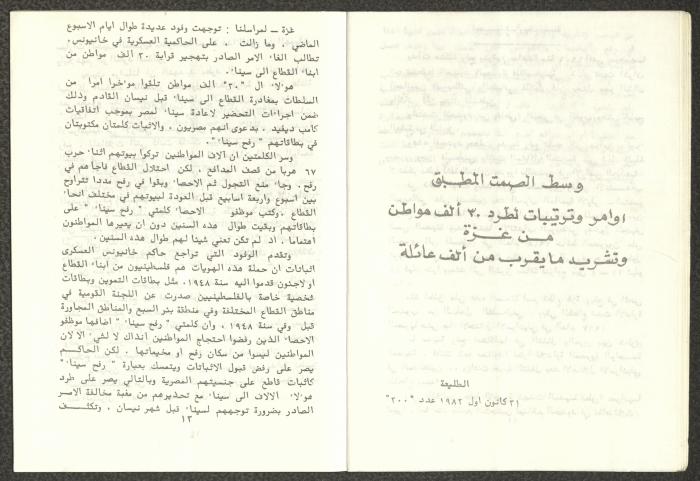 وسط الصمت المطبق
اوامر وترتيبات لطرد ٣٠ ألف مواطن
من غزة
وتشريد ما يقرب من ألف عائلة
الطليعة
٣١ كانون اول ١٩٨٢ عدد "٢٠٠"
غزة ــ لمراسلنا : توجهت وفود عديدة طوال ايام الاسبوع
الماضي ، وما زالت ، على الحاكمية العسكرية في خانيونس،
تطالب الغاء الامر الصادر بتهجير قرابة ٣٠ الف مواطن من
ابناء القطاع الى سيناء .
هؤلاء ال "٣٠" الف مواطن تلقوا مؤخرا امرا من
السلطات بمغادرة القطاع الى سيناء قبل نيسان القادم وذلك
ضمن اجراءات التحضير لاعادة سيناء لمصر بموجب اتفاقيات
كامب ديفيد . بدعوى انهم مصريون ، والاثبات كلمتان مكتوبتان
في بطاقاتهم " رفح سيناء ".
وسر الكلمتين ان آلاف المواطنين تركوا بيوتهم اثناء حرب
٦٧ هربا من قصف المدافع . لكن احتلال القطاع فاجأهم في
رفح. وجاء منع التجول ثم الاحصاء وبقوا في رفح مددا تتراوح
بين اسبوع واربعة اسابيع قبل العودة لبيوتهم في مختلف انحاء
القطاع .وكتب موظفو الاحصاء كلمتي " رفح سيناء " على
بطاقاتهم وبقيت طوال هذه السنين دون ان يعيرها المواطنون
اهتماما . اذ لم تكن تعني شيئا لهم طوال هذه السنين .
وتقدم الوفود التي تراجع حاكم خانيونس العسكرى
اثباتات ان حملة هذه الهويات هم فلسطينيون من ابناء القطاع
او لاجئون قدموا اليه سنة ١٩٤٨. مثل بطاقات التموين وبطاقات
شخصية خاصة بالفلسطينيين صدرت عن اللجنة القومية في
مناطق القطاع المختلفة وفي منطقة بئر السبع والمناطق المجاورة
قبل وفي سنة ١٩٤٨ ، وان كلمتي " رفح سيناء " اضافها موظفو
الاحصاء الذين رفضوا احتجاج المواطنين آنذاك لا لشيء الا لان
المواطنين ليسوا من سكان رفح او مخيماتها . لكن الحاكم
يصر على رفض قبول الاثباتات ويتمسك بعبارة " رفح سيناء "
كاثبات قاطع على جنسيتهم المصرية وبالتالي يصر على طرد
هؤلاء الآلاف الى سيناء مع تحذيرهم من مغبة مخالفة الامر
الصادر بضرورة توجههم لسيناء قبل شهر نيسان . وتكثف
١٣